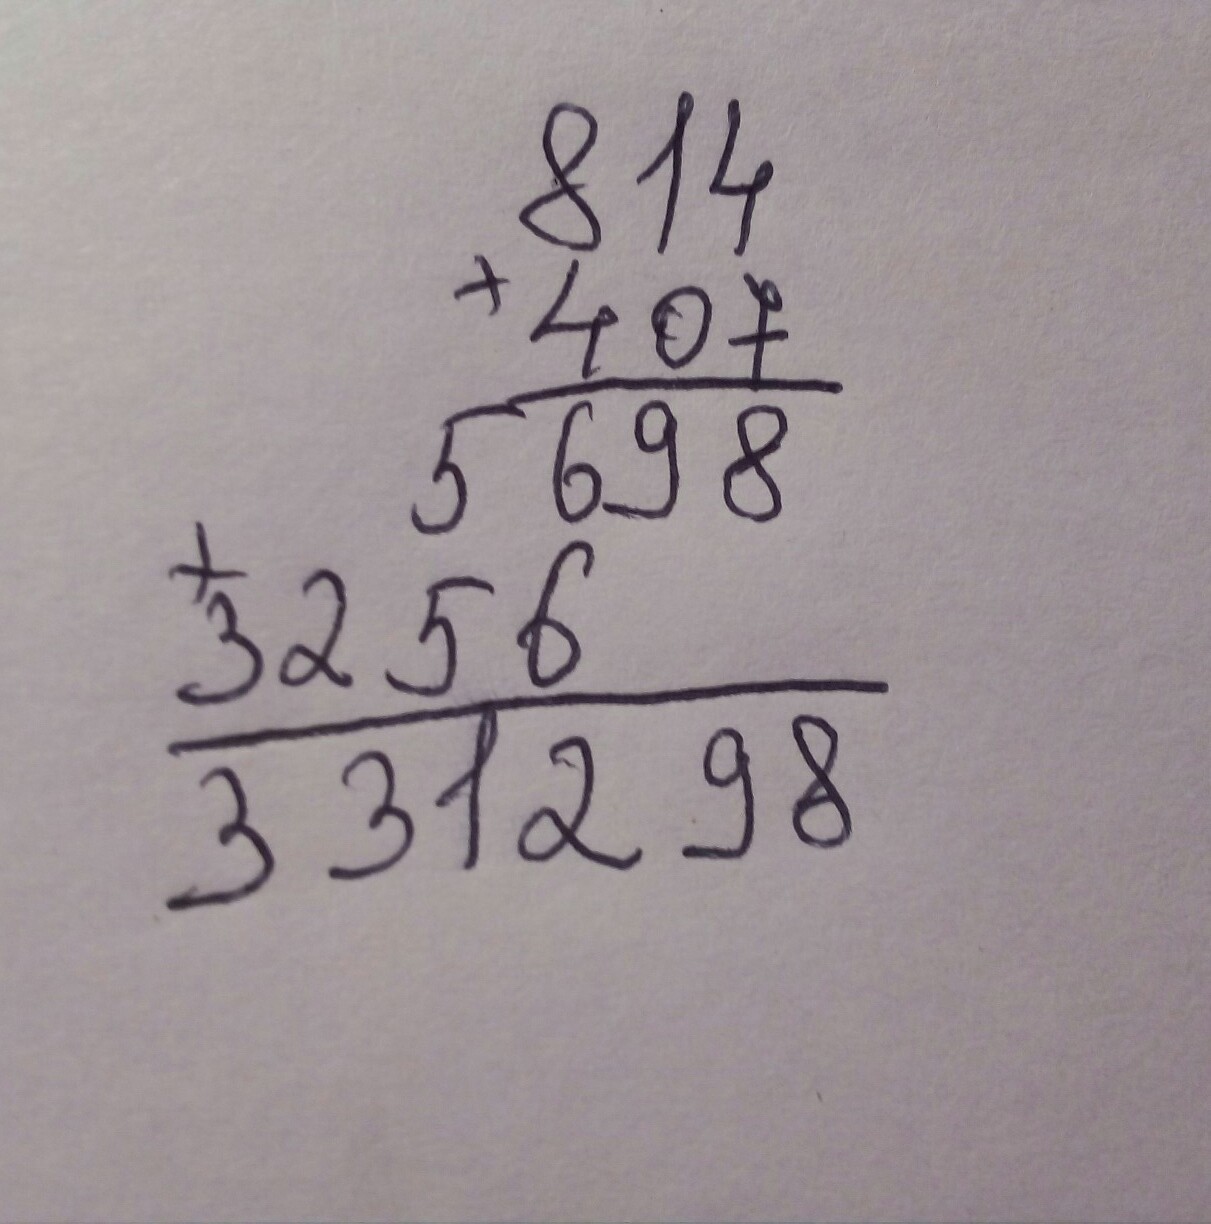 814
+ 407
5698
+ 3256
331298